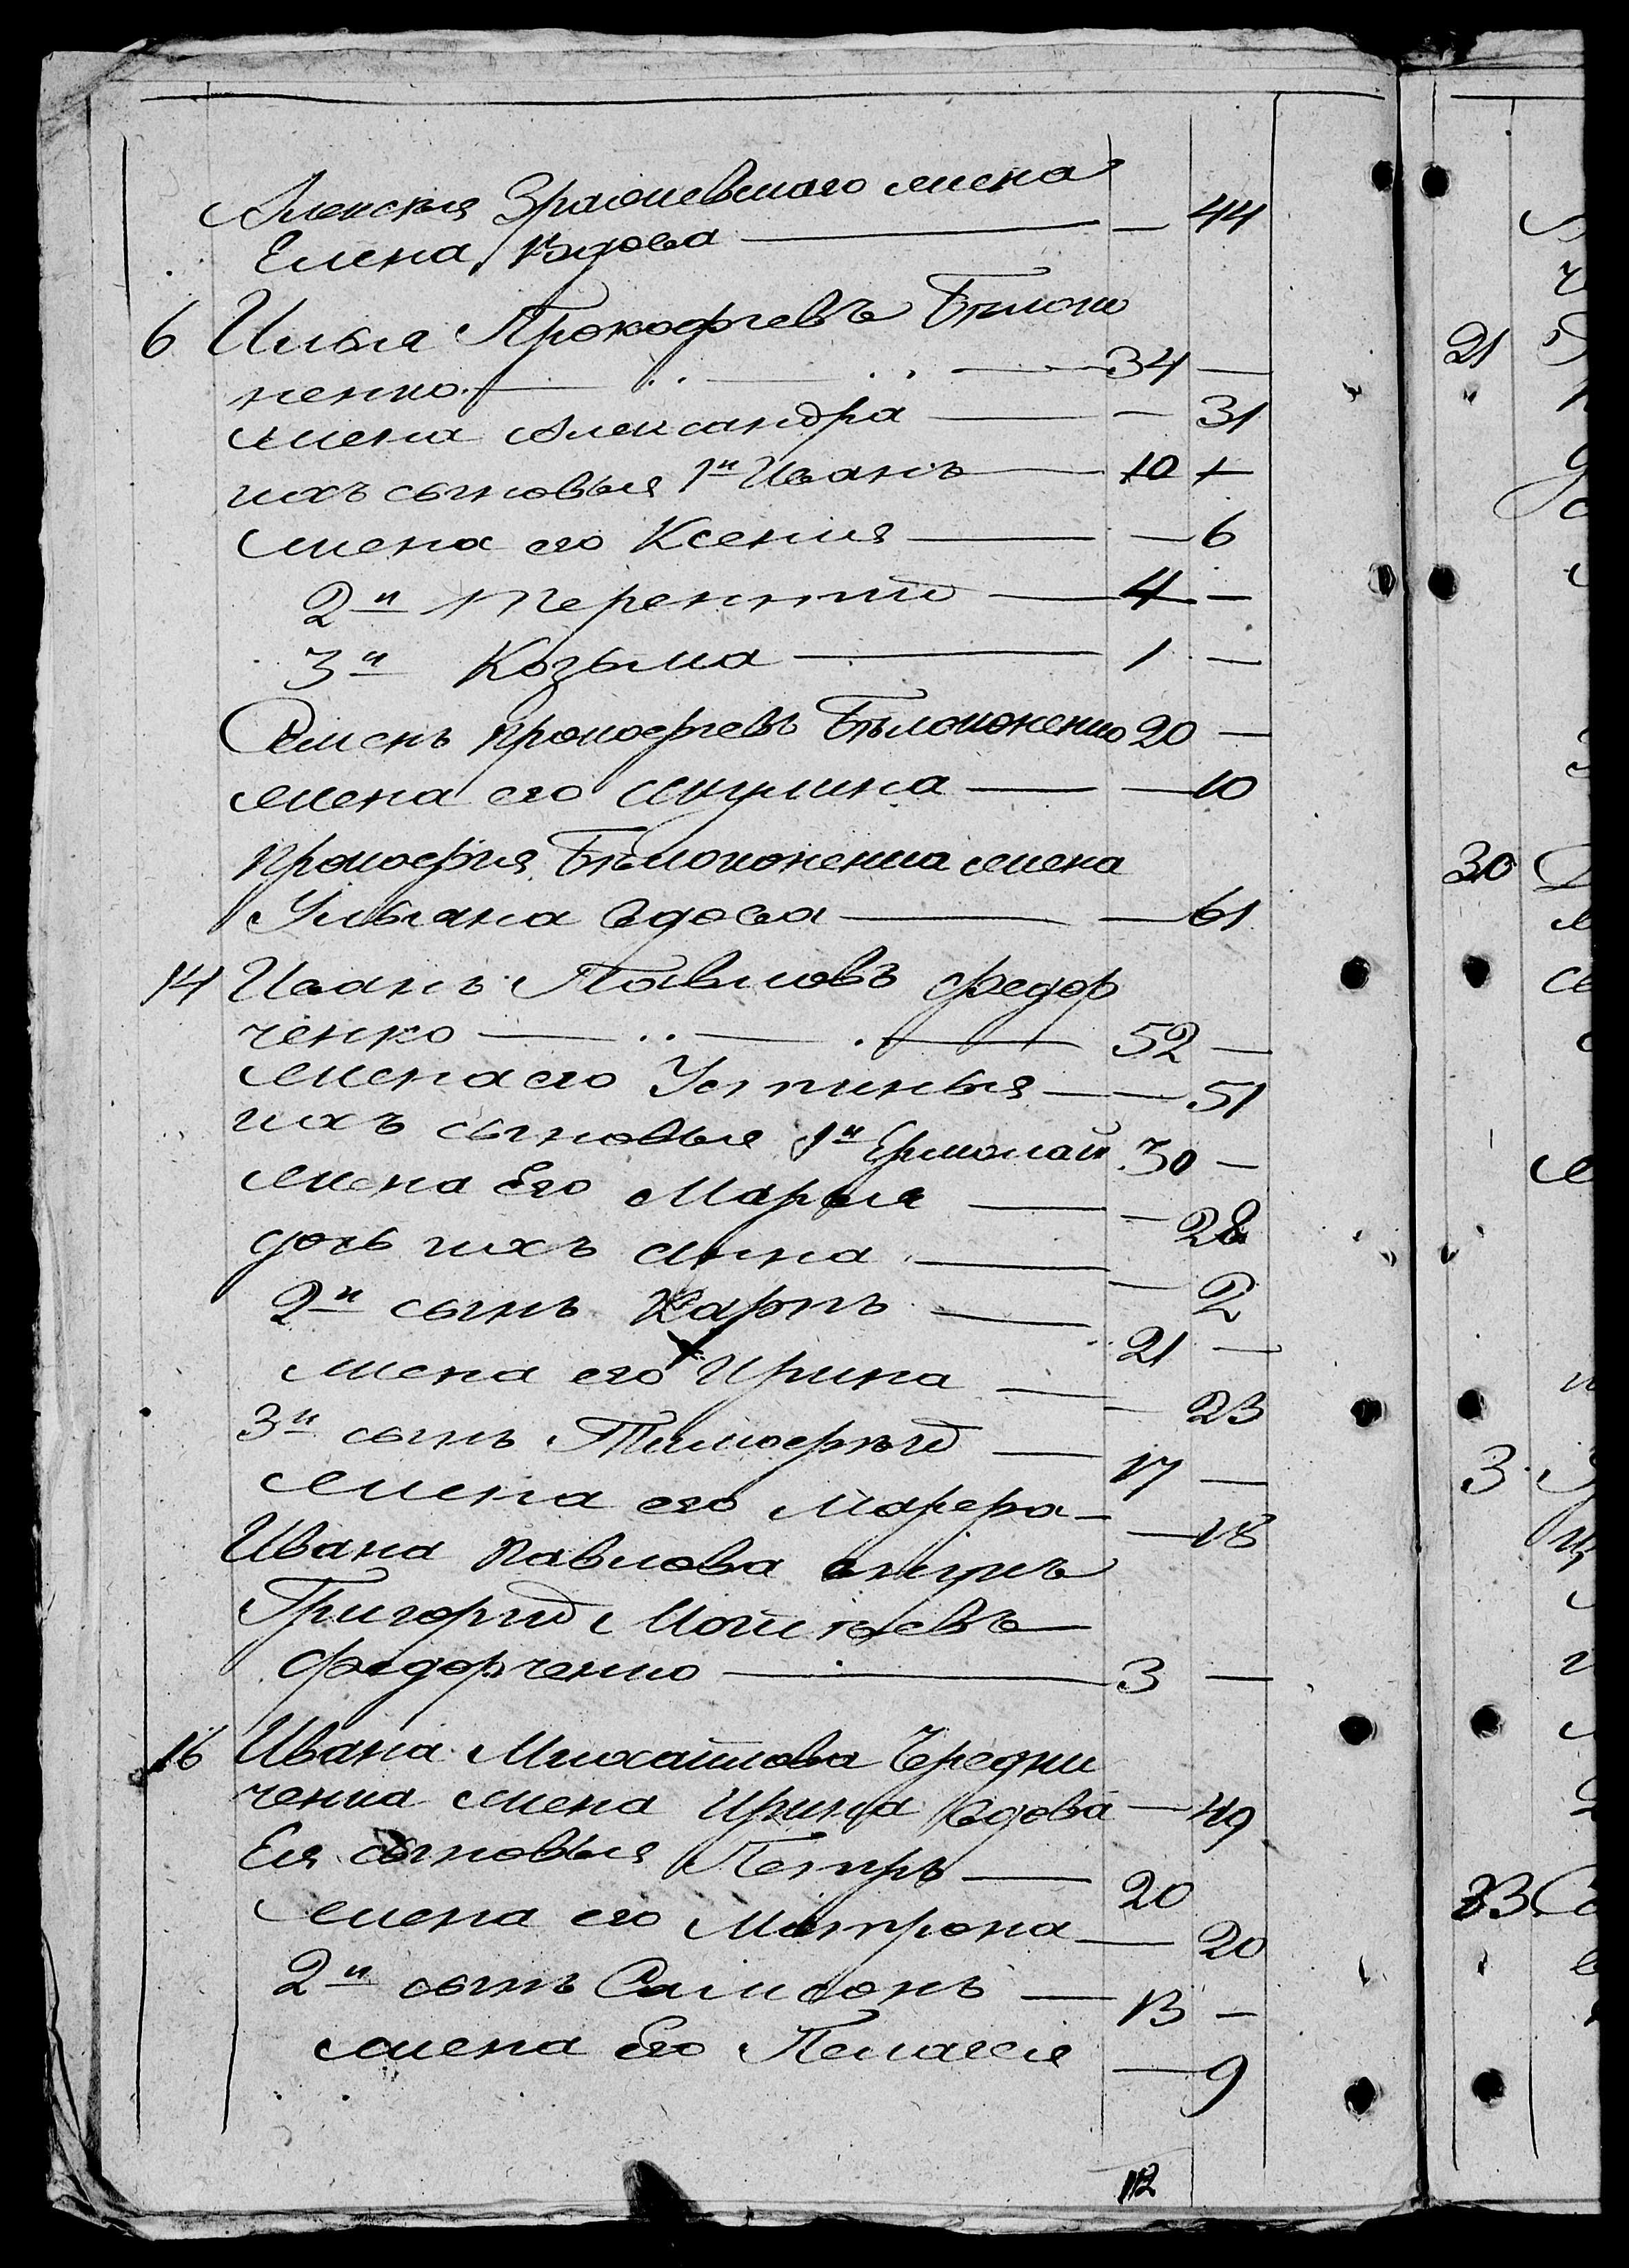 Алексѣя Зражевскаго жена
Елена, вдова — — 44
6 Илья Прокофьевъ Бѣлоко
ненко — 34 —
жена Александра — — 31
ихъ сыновья 1й Иванъ — 10 —
жена его Ксенія — — 6
2й Терентій — 4 —
3й Козьма — 1 —
Семенъ Прокофьевъ Бѣлоконенко 20 —
жена его Акулина — — 10
Прокофія Бѣлоконенка жена
Ульяна вдова — — 61
14 Иванъ Павловъ Федор
ченко — 52 —
жена его Устинья — — 51
ихъ сыновья 1й Ермолай 30 —
жена Его Марья — — 28
дочь ихъ Анна — — 2
2й сынъ Карпъ — 21 —
жена его Ирина — — 23
3й сынъ Тимофѣй — 17 —
жена его Марфа — — 18
Ивана Павлова внукъ
Григорій Мойсеевъ
Федорченко — 3 —
16 Ивана Михайлова Чередни
ченка жена Ирина вдова — 49
Ея сыновья Петръ — 20
жена его Матрона — 20
2й сынъ Самсонъ — 13 —
жена Его Пелагея — 9
12
21
30
3
23